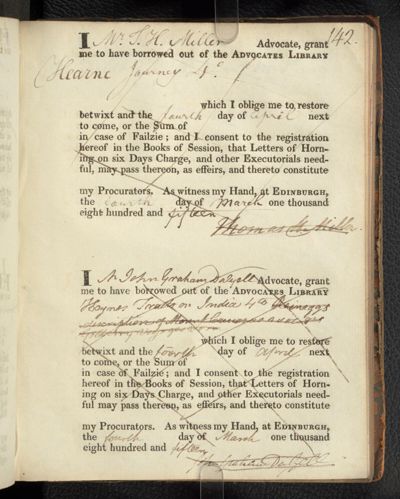 142.
I Mr. T. H. Miller Advocate, grant
me to have borrowed out of the ADVOCATES LIBRARY
Hearne Journey 4to
which I oblige me to restore
betwixt and the fourth day of April next
to come, or the Sum of
in case of Failzie; and I consent to the registration
hereof in the Books of Session, that Letters of Horn-
ing on six Days Charge, and other Executorials need-
ful, may pass thereon, as effeirs, and thereto constitute
my Procurators. As witness my Hand, at EDINBURGH,
the fourth day of March one thousand
eight hundred and fifteen
Thomas Miller.
I Mr John Graham Dalyell Advocate, grant
me to have borrowed out of the ADVOCATES LIBRARY
Heynes Tracts on India 4to
description of Mount
which I oblige me to restore
betwixt and the fourth day of April next
to come, or the Sum of
in case of Failzie; and I consent to the registration
hereof in the Books of Session, that Letters of Horn-
ing on six Days Charge, and other Executorials need-
ful may pass thereon, as effeirs, and thereto constitute
my Procurators. As witness my Hand, at EDINBURGH,
the fourth day of March one thousand
eight hundred and fifteen
Graham Dalyell